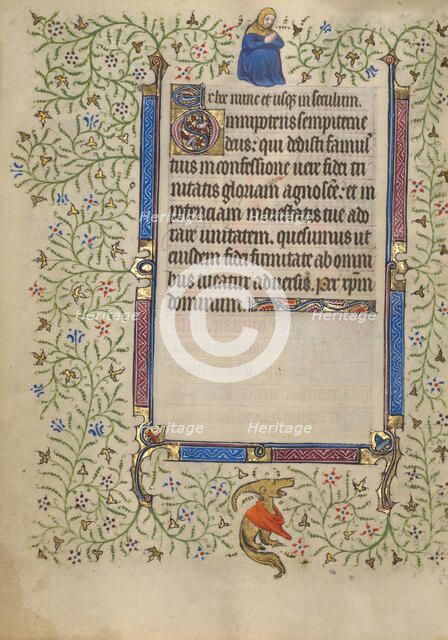 Ex hoc nunc et usqz in seculum.
Omnipotens sempiterne
deus: qui dedisti famul'
tuis in confessione vere fidei tri
nitatis gloriam agnosce': et in
potencia maiestatis tue ado
rare unitatem. quesumus ut
eiusdem fidei firmitate ab omni
bus tueatur adversis. Per xpm
dominum.
Heritage
Heritage
Heritage
Heritage
Heritage
Heritage